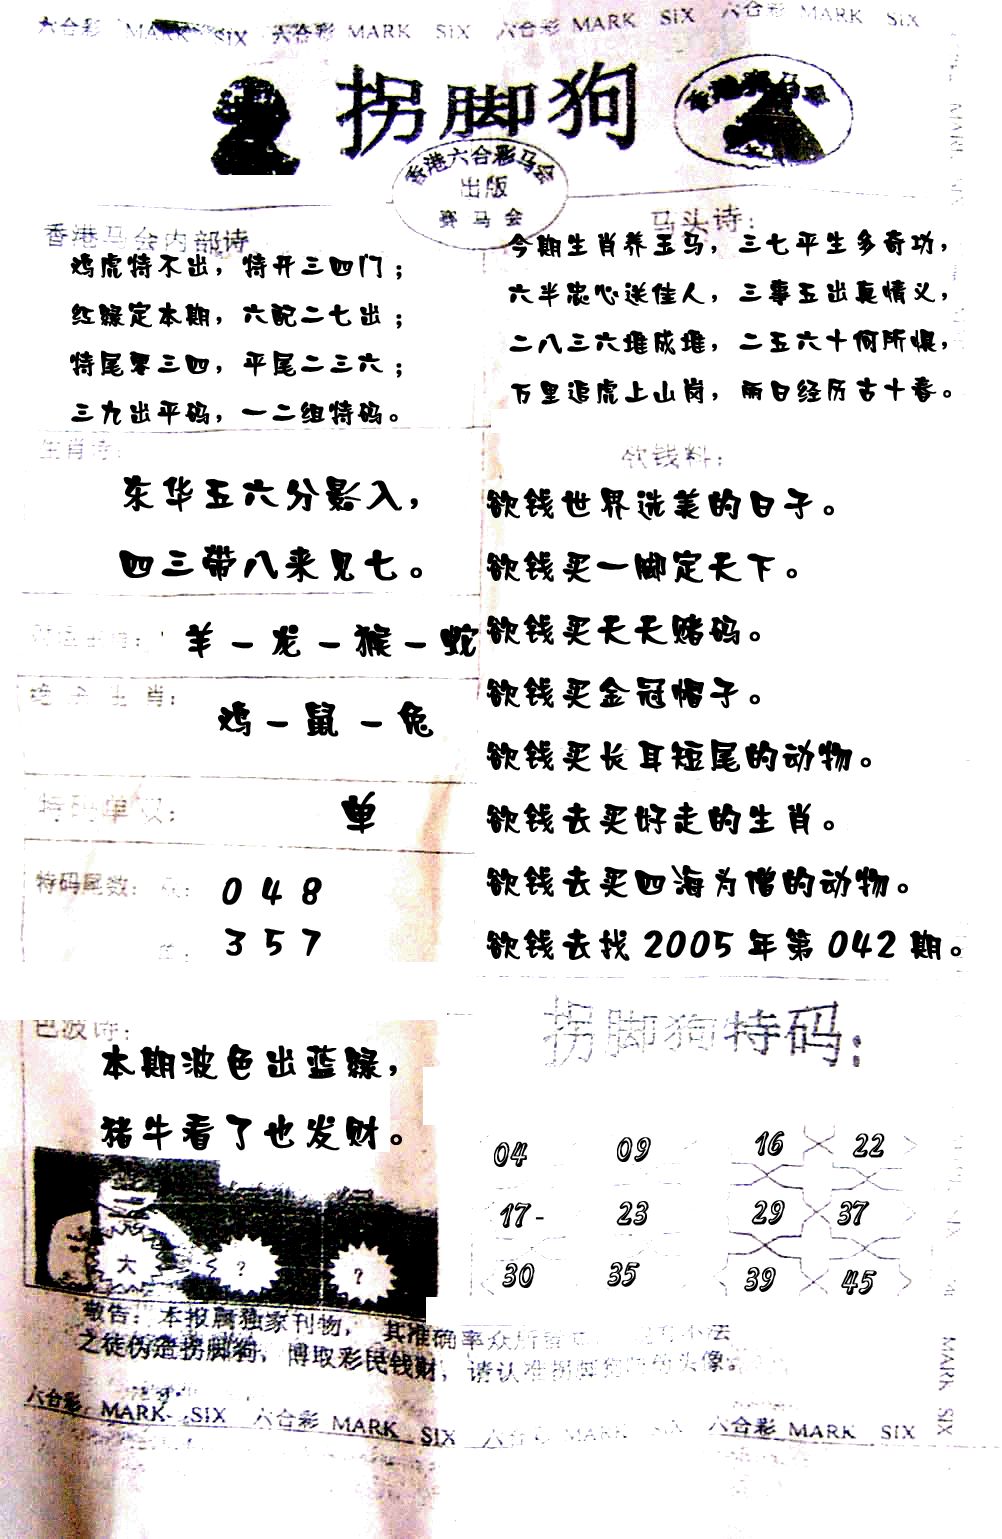 六合彩 MARK SIX 六合彩 MARK SIX 六合彩 MARK SIX 六合彩 MARK SIX
拐脚狗
香港六合彩马会
出版
赛马会
香港马会内部诗
鸡虎特不出，特开三四门；
红绿定本期，六配二七出；
特尾零三四，平尾二三六；
三九出平码，一二组特码。
马头诗：
今期生肖养玉马，三七平生多奇功，
六半忠心送佳人，三事五出真情义，
二八三六堆成堆，二五六十何所惧，
万里追虎上山岗，雨日经历古十春。
生肖诗：
东华五六分影入，
四三带八来见七。
羊－龙－猴－蛇
绝杀生肖：
鸡－鼠－兔
特码单双：
单
特码尾数：
0 4 8
3 5 7
欲钱料：
欲钱世界选美的日子。
欲钱买一脚定天下。
欲钱买天天赌码。
欲钱买金冠帽子。
欲钱买长耳短尾的动物。
欲钱去买好走的生肖。
欲钱去买四海为僧的动物。
欲钱去找 2005 年第 042 期。
色波诗：
本期波色出蓝绿，
猪牛看了也发财。
大 ? ?
拐脚狗特码：
04 09 16 22
17- 23 29 37
30 35 39 45
敬告：本报属独家刊物，其准确率众所
之徒伪造拐脚狗，博取彩民钱财，请认准拐脚狗 头像
六合彩 MARK SIX 六合彩 MARK SIX 六合彩 MARK SIX 六合彩 MARK SIX
MARK SIX